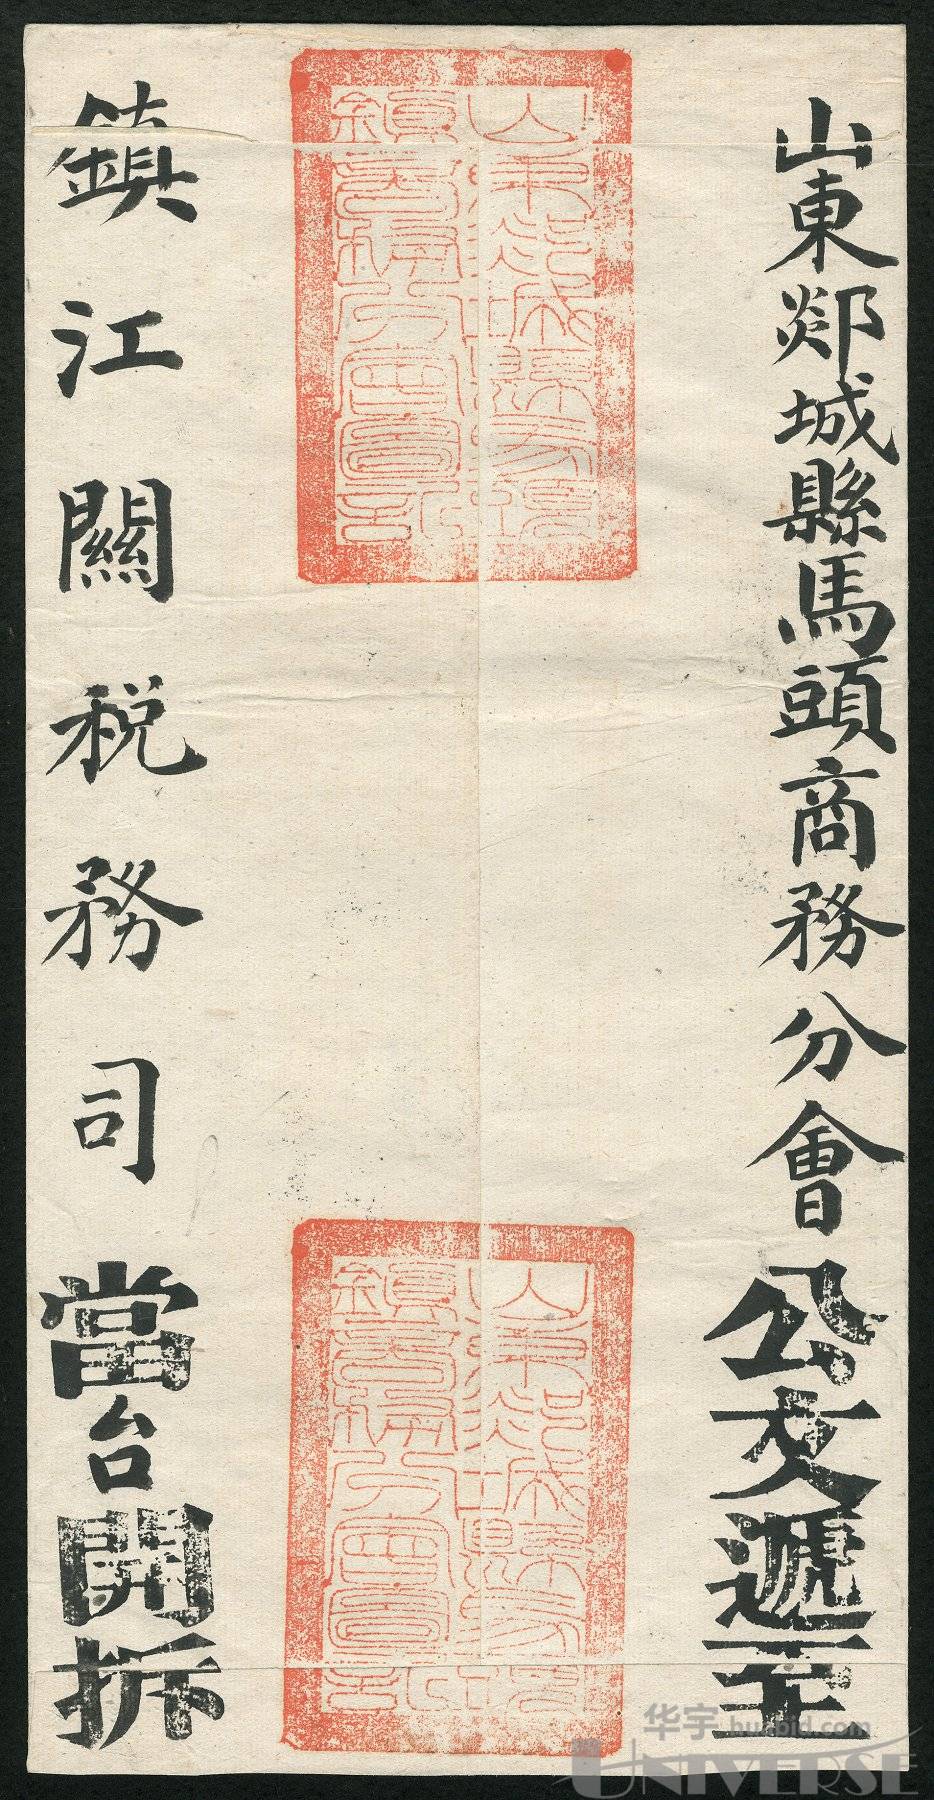 山東郯城縣馬頭商務分會公文遞至
鎮江關税務司當台開拆
华宇 huabid.com
UNIVERSE